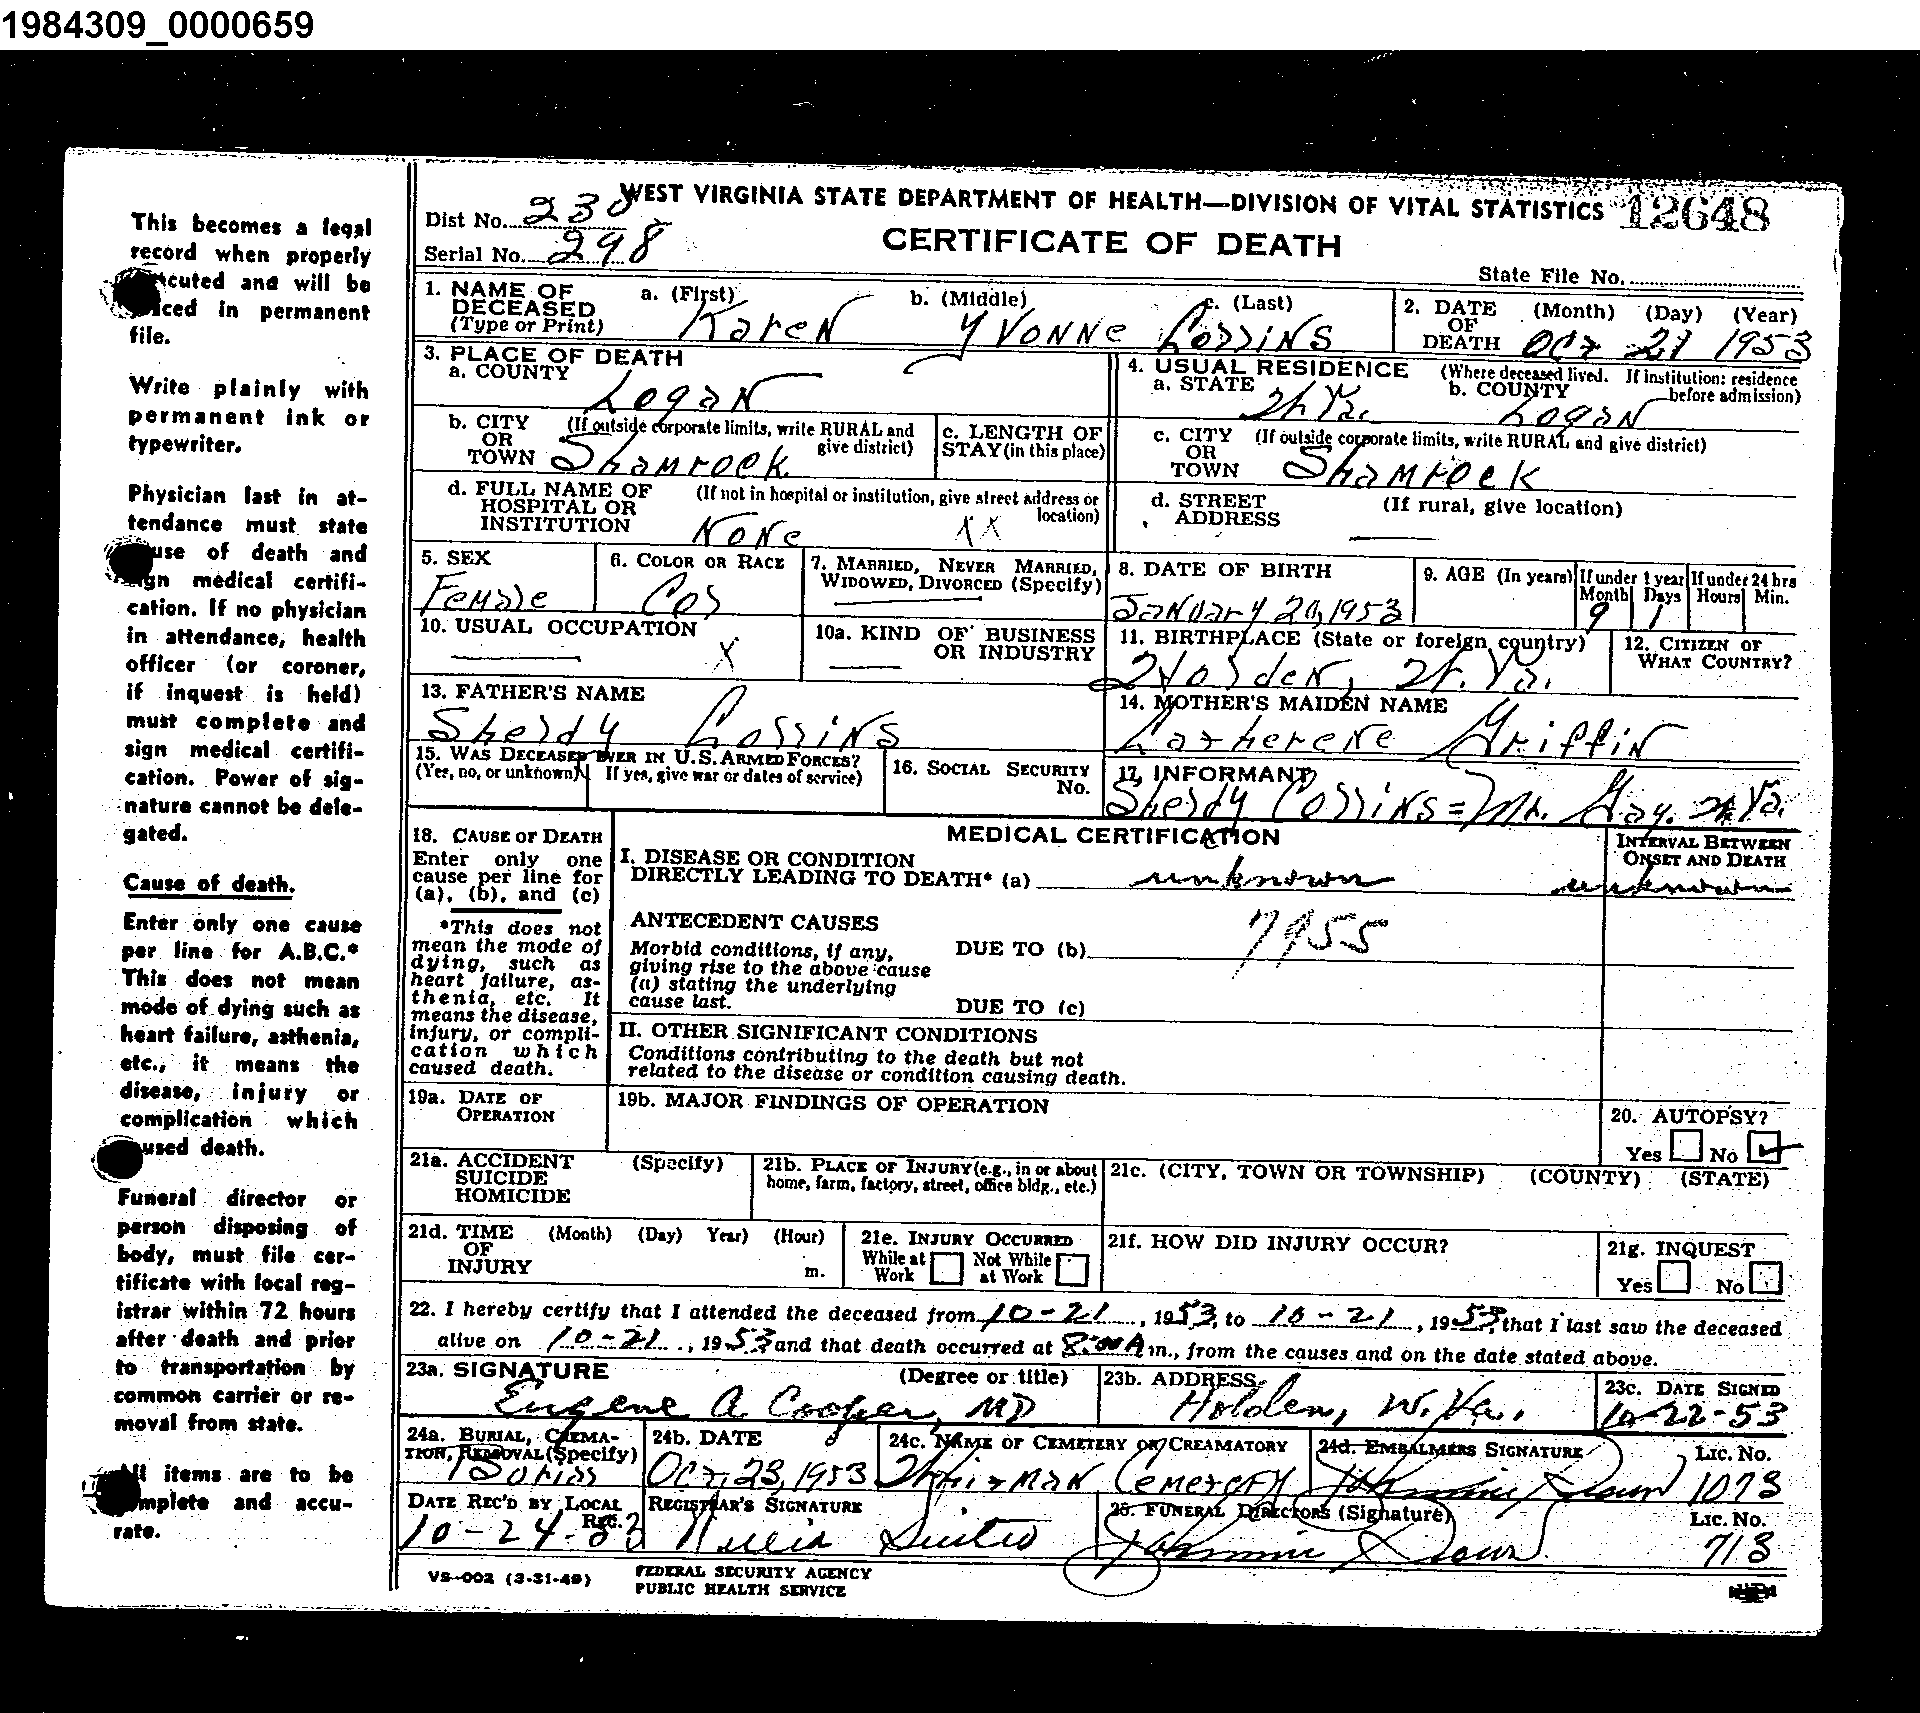 1984309_0000659
This becomes a legal
record when properly
cuted and will be
ced in permanent
file.
Write plainly with
permanent ink or
typewriter.
Physician last in at-
tendance must state
use of death and
gn medical certifi-
cation. If no physician
in attendance, health
officer (or coroner,
if inquest is held)
must complete and
sign medical certifi-
cation. Power of sig-
nature cannot be dele-
gated.
Cause of death.
Enter only one cause
per line for A.B.C.*
This does not mean
mode of dying such as
heart failure, asthenia,
etc., it means the
disease, injury or
complication which
used death.
Funeral director or
person disposing of
body, must file cer-
tificate with local reg-
istrar within 72 hours
after death and prior
to transportation by
common carrier or re-
moval from state.
All items are to be
mplete and accu-
rate.
WEST VIRGINIA STATE DEPARTMENT OF HEALTH—DIVISION OF VITAL STATISTICS 12648
Dist No. 230
CERTIFICATE OF DEATH
Serial No. 298
State File No.
1. NAME OF DECEASED (Type or Print) a. (First) Karen b. (Middle) Yvonne c. (Last) Collins
2. DATE OF DEATH (Month) (Day) (Year) Oct 21 1953
3. PLACE OF DEATH
a. COUNTY Logan
4. USUAL RESIDENCE (Where deceased lived. If institution: residence before admission)
a. STATE W. Va. b. COUNTY Logan
b. CITY OR TOWN (If outside corporate limits, write RURAL and give district) Shamrock
c. LENGTH OF STAY (in this place)
c. CITY OR TOWN (If outside corporate limits, write RURAL and give district) Shamrock
d. FULL NAME OF HOSPITAL OR INSTITUTION (If not in hospital or institution, give street address or location) None XX
d. STREET ADDRESS (If rural, give location)
5. SEX Female
6. COLOR OR RACE Col
7. MARRIED, NEVER MARRIED, WIDOWED, DIVORCED (Specify)
8. DATE OF BIRTH January 20, 1953
9. AGE (In years) If under 1 year Month 9 Days 1 If under 24 hrs Hours Min.
10. USUAL OCCUPATION X
10a. KIND OF BUSINESS OR INDUSTRY
11. BIRTHPLACE (State or foreign country) Holden, W. Va.
12. CITIZEN OF WHAT COUNTRY?
13. FATHER'S NAME Sheldy Collins
14. MOTHER'S MAIDEN NAME Catherene Griffin
15. WAS DECEASED EVER IN U.S. ARMED FORCES? (Yes, no, or unknown) If yes, give war or dates of service)
16. SOCIAL SECURITY No.
17. INFORMANT Sheldy Collins = Mt. Gay. W. Va.
18. CAUSE OF DEATH
Enter only one
cause per line for
(a), (b), and (c)
*This does not
mean the mode of
dying, such as
heart failure, as-
thenia, etc. It
means the disease,
injury, or compli-
cation which
caused death.
MEDICAL CERTIFICATION
INTERVAL BETWEEN ONSET AND DEATH
I. DISEASE OR CONDITION
DIRECTLY LEADING TO DEATH* (a) unknown unknown
ANTECEDENT CAUSES 7955
Morbid conditions, if any, DUE TO (b)
giving rise to the above cause
(a) stating the underlying
cause last. DUE TO (c)
II. OTHER SIGNIFICANT CONDITIONS
Conditions contributing to the death but not
related to the disease or condition causing death.
19a. DATE OF OPERATION
19b. MAJOR FINDINGS OF OPERATION
20. AUTOPSY?
Yes No
21a. ACCIDENT SUICIDE HOMICIDE (Specify)
21b. PLACE OF INJURY (e.g., in or about home, farm, factory, street, office bldg., etc.)
21c. (CITY, TOWN OR TOWNSHIP) (COUNTY) (STATE)
21d. TIME OF INJURY (Month) (Day) Year) (Hour) m.
21e. INJURY OCCURRED
While at Work Not While at Work
21f. HOW DID INJURY OCCUR?
21g. INQUEST
Yes No
22. I hereby certify that I attended the deceased from 10-21, 1953, to 10-21, 1953, that I last saw the deceased
alive on 10-21, 1953 and that death occurred at 8:00 A m., from the causes and on the date stated above.
23a. SIGNATURE (Degree or title) Eugene A. Cooper, MD
23b. ADDRESS Holden, W. Va.
23c. DATE SIGNED 10-22-53
24a. BURIAL, CREMATION, REMOVAL (Specify) Burial
24b. DATE Oct, 23, 1953
24c. NAME OF CEMETERY OR CREAMATORY Cemetery
24d. EMBALMERS SIGNATURE Lic. No. 1073
DATE REC'D BY LOCAL REG. 10-24-53
REGISTRAR'S SIGNATURE
25. FUNERAL DIRECTORS (Signature) Lic. No. 713
VS-002 (3-31-49)
FEDERAL SECURITY AGENCY
PUBLIC HEALTH SERVICE